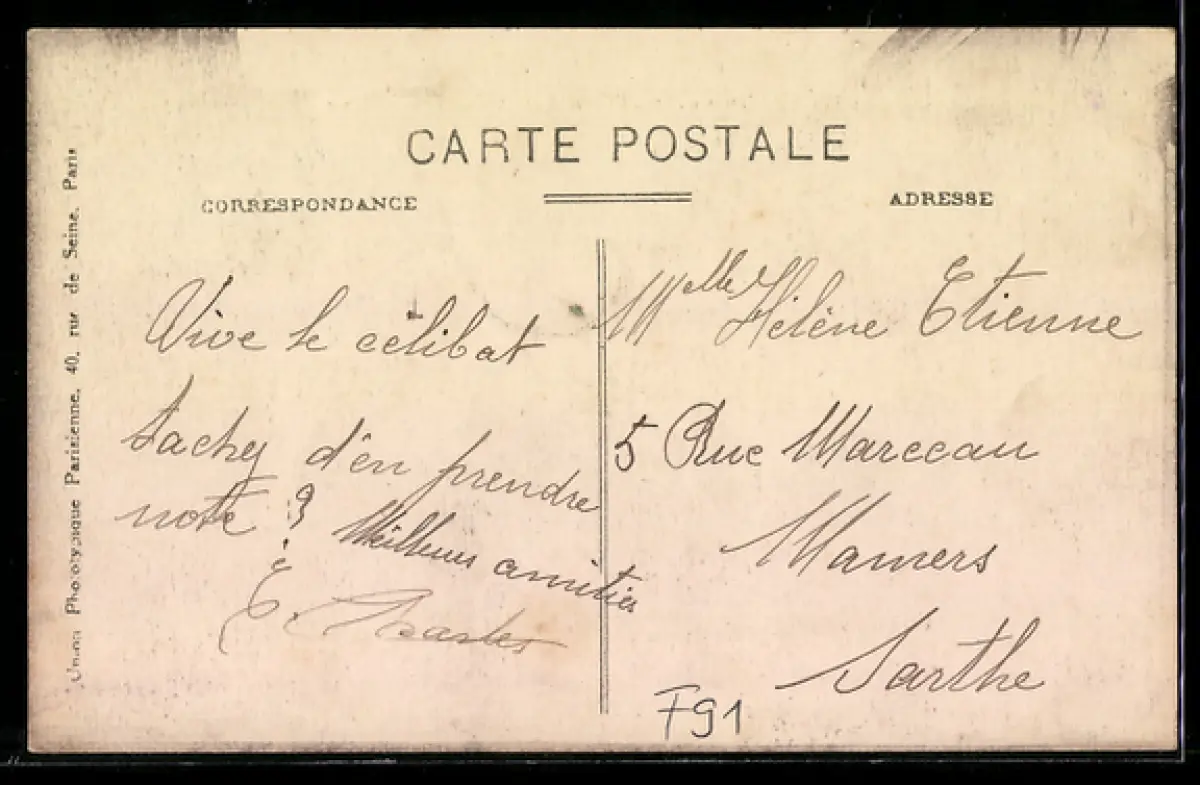 CARTE POSTALE
CORRESPONDANCE
ADRESSE
Vive le célibat
tachez d'en prendre
note ?
Meilleures amitiés
E.
Melle Hélène Etienne
5 Rue Marceau
Mamers
Sarthe
F91
Union Phototypique Parisienne, 40, rue de Seine, Paris